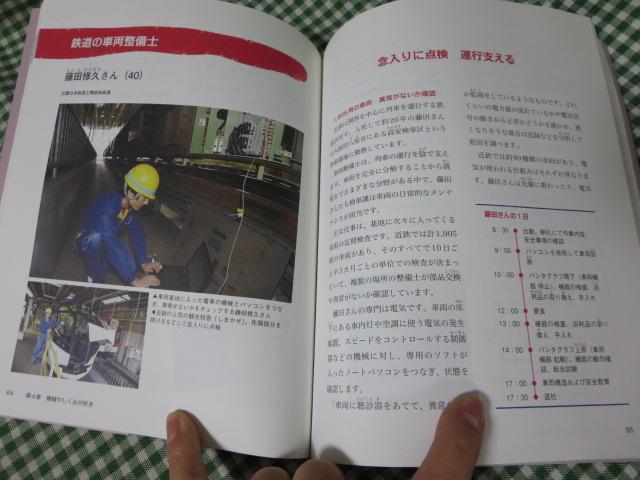 鉄道の車両整備士
藤田修久さん（40）
近畿日本鉄道工機部検車區
▲車両基地に入った電車の機械とパソコンをつな
ぎ、異常がないかをチェックする藤田修久さん
◀近鉄の人気の観光特急「しまかぜ」。先頭部分を
開けるなどして念入りに点検
64　第4章　機械やしくみが好き
念入りに点検　運行支える
1,905両の車両　異常がないか確認
近鉄は関西を中心に列車を運行する鉄
道会社で、入社して約20年の藤田さん
は大阪府八尾市にある高安検車区という
車両基地に勤務しています。
車両整備士は、列車の運行を陰で支え
ます。車両を完全に分解することから清
掃までさまざまな分野がある中で、藤田
さんたち検車課は車両の日常的なメンテ
ナンスが担当です。
主な仕事は、基地に次々に入ってくる
車両の定期検査です。近鉄では計1,905
両の車両があり、そのすべてで10日ご
とや3カ月ごとの単位での検査が決まっ
ていて、複数の場所の整備士が部品交換
や異常がないか確認しています。
藤田さんの専門は電気です。車両の床
下にある車内灯や空調に使う電気の発生
装置、スピードをコントロールする制御
器などの機械に対し、専用のソフトが
入ったノートパソコンをつなぎ、状態を
確認します。
「車両に聴診器をあてて、異常
か監視をしているようなものです。どれ
くらいの電力量が流れているかや電気信
号の動きから正常かどうかを確かめ、悪
くなりそうな場合は記録などを分析して
原因を調べます」
近鉄では約80種類の車両があり、電
気が使われる仕組みはそれぞれ異なりま
す。藤田さんは先輩に教わったり、電気
藤田さんの1日
8：30　出勤。朝礼にて作業内容、
安全事項の確認
9：00　パソコンを使用して車両診
断
10：00　パンタグラフ降下（車両機
器 停止）、機器の検査、消
耗品の取り換え、手入れ
12：00　昼食
13：00　機器の検査、消耗品の取り
換え、手入れ
14：00　パンタグラフ上昇（車両機
器 起動）、機器の動作確
認、総合試験
17：00　車両構造および安全教育
17：30　退社
65